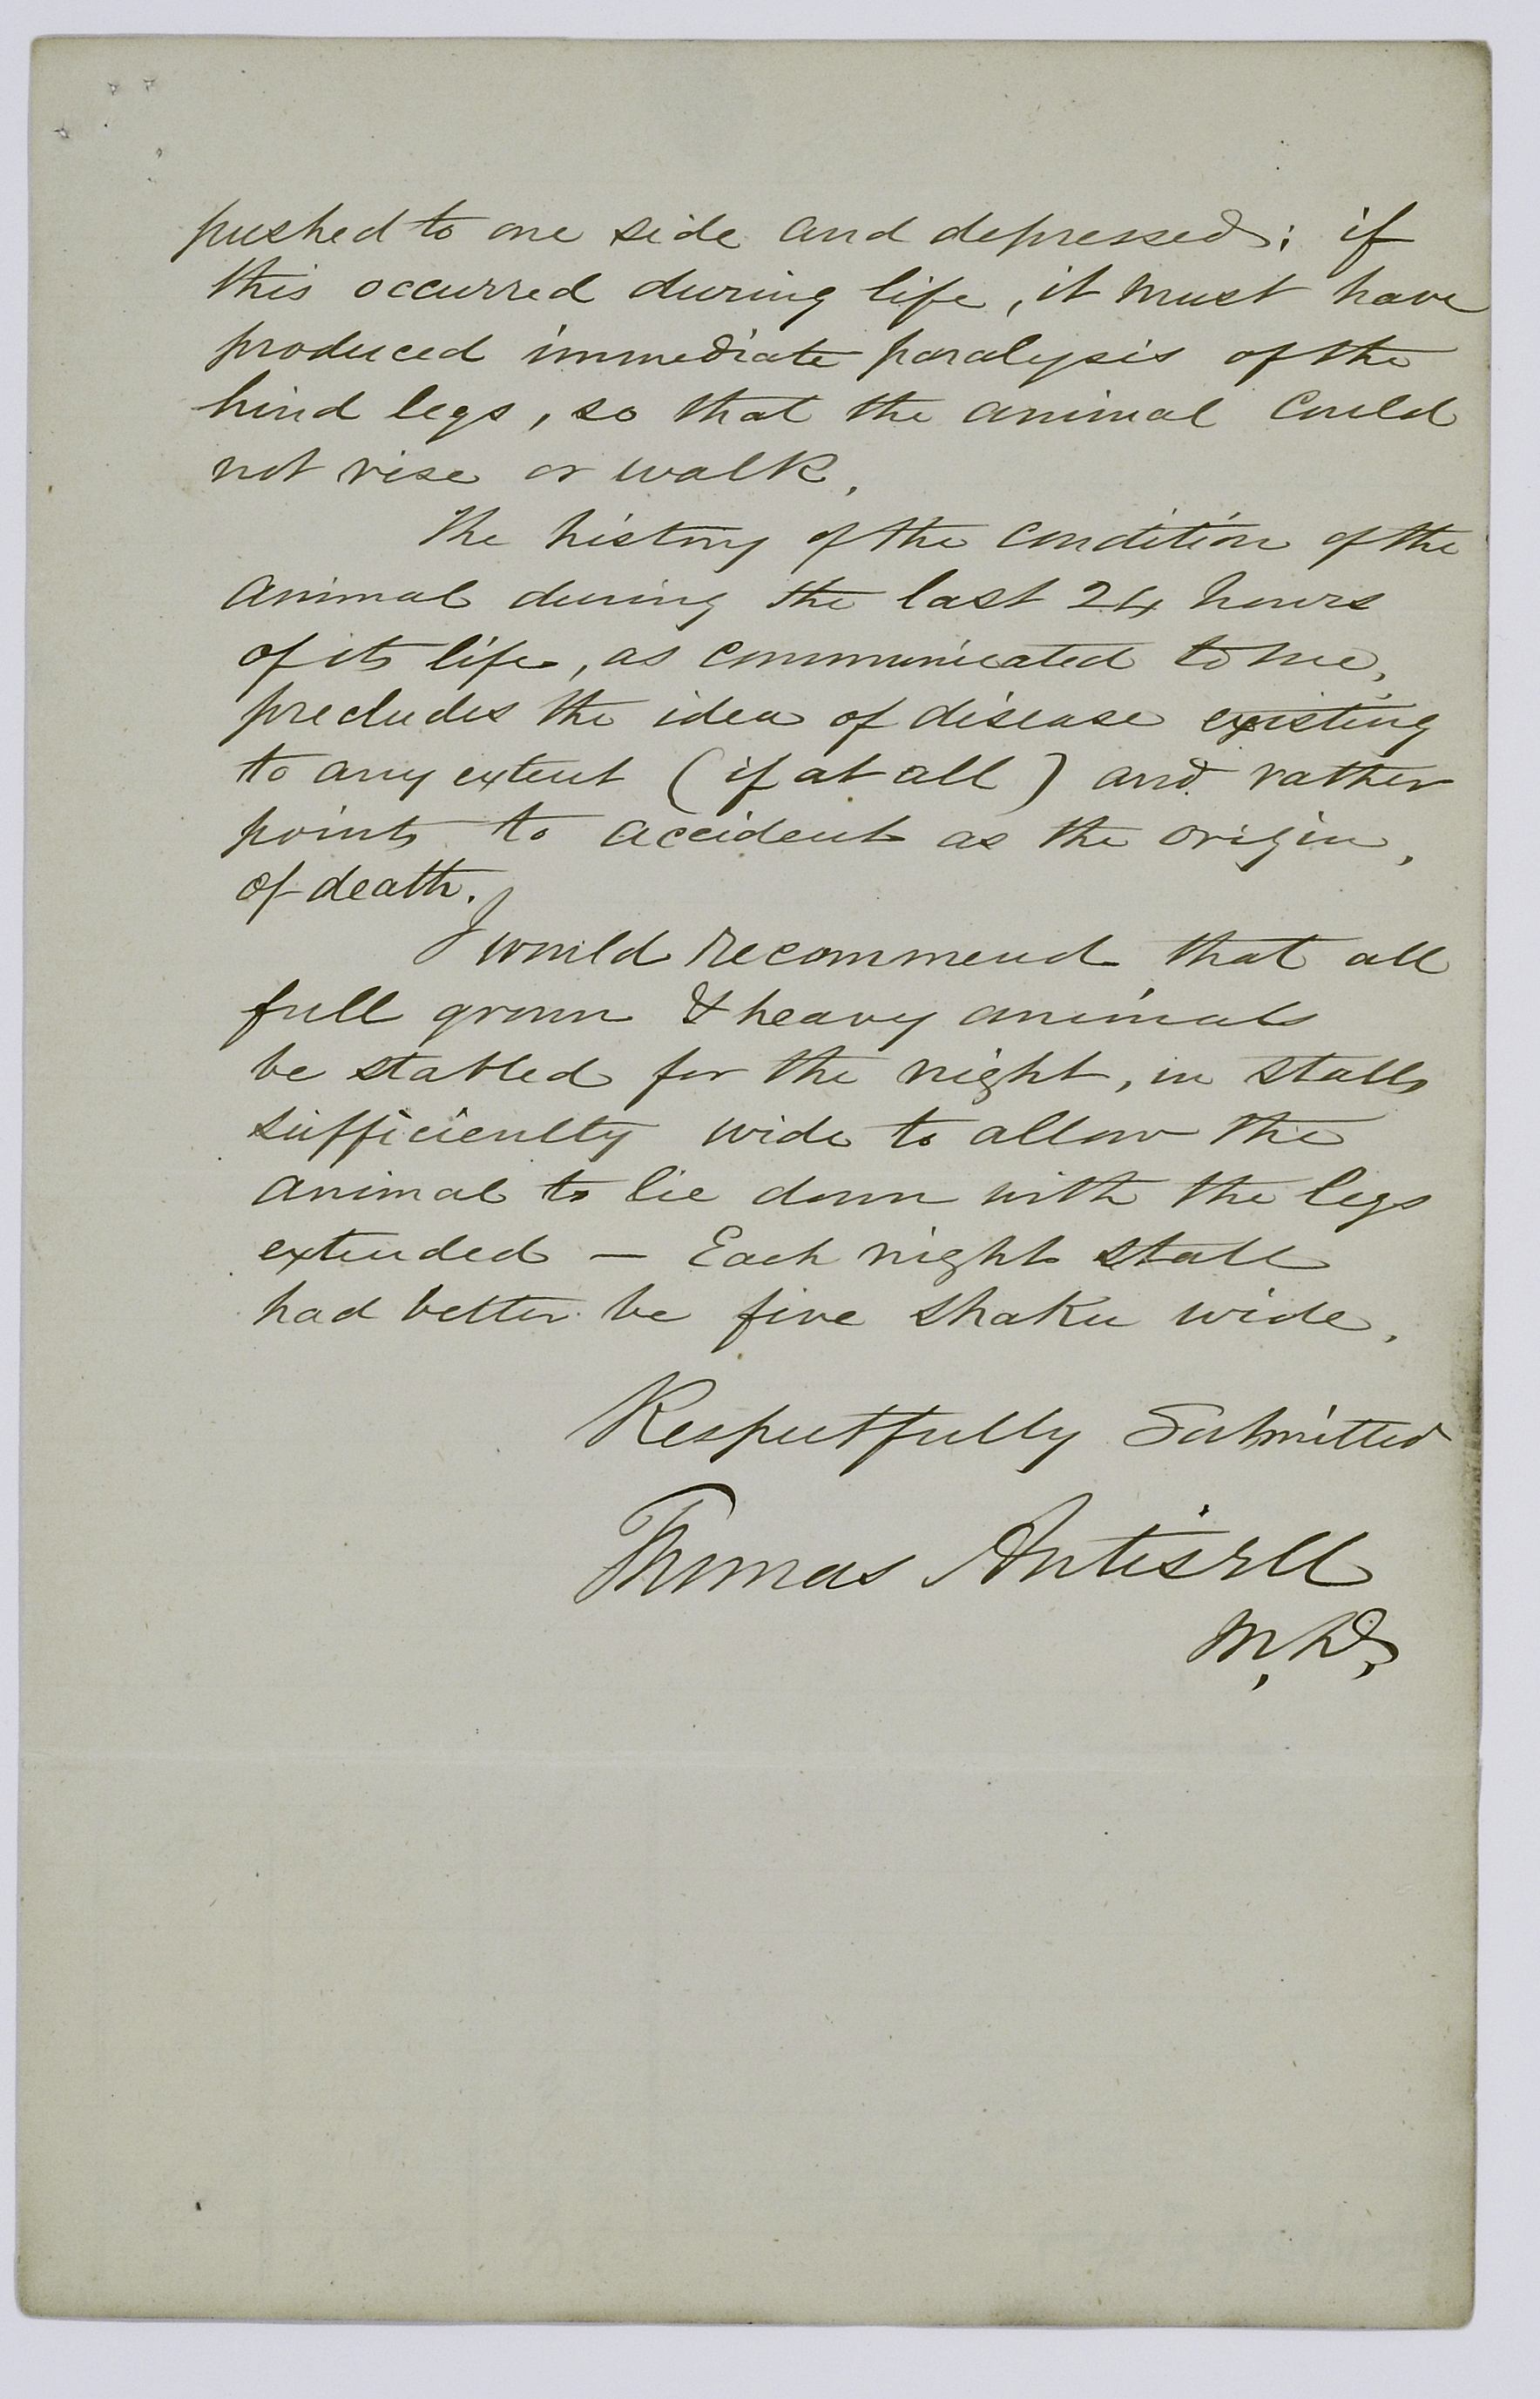 pushed to one side and depressed; if
this occurred during life, it must have
produced immediate paralysis of the
hind legs, so that the animal could
not rise or walk.
The history of the condition of the
animal during the last 24 hours
of its life, as communicated to me,
precludes the idea of disease existing
to any extent (if at all) and rather
points to accident as the origin,
of death.
I would recommend that all
full grown & heavy animals
be stabled for the night, in stalls
sufficiently wide to allow the
animal to lie down with the legs
extended — Each night stall
had better be five shaku wide.
Respectfully Submitted
Thomas Antisell
M.D.